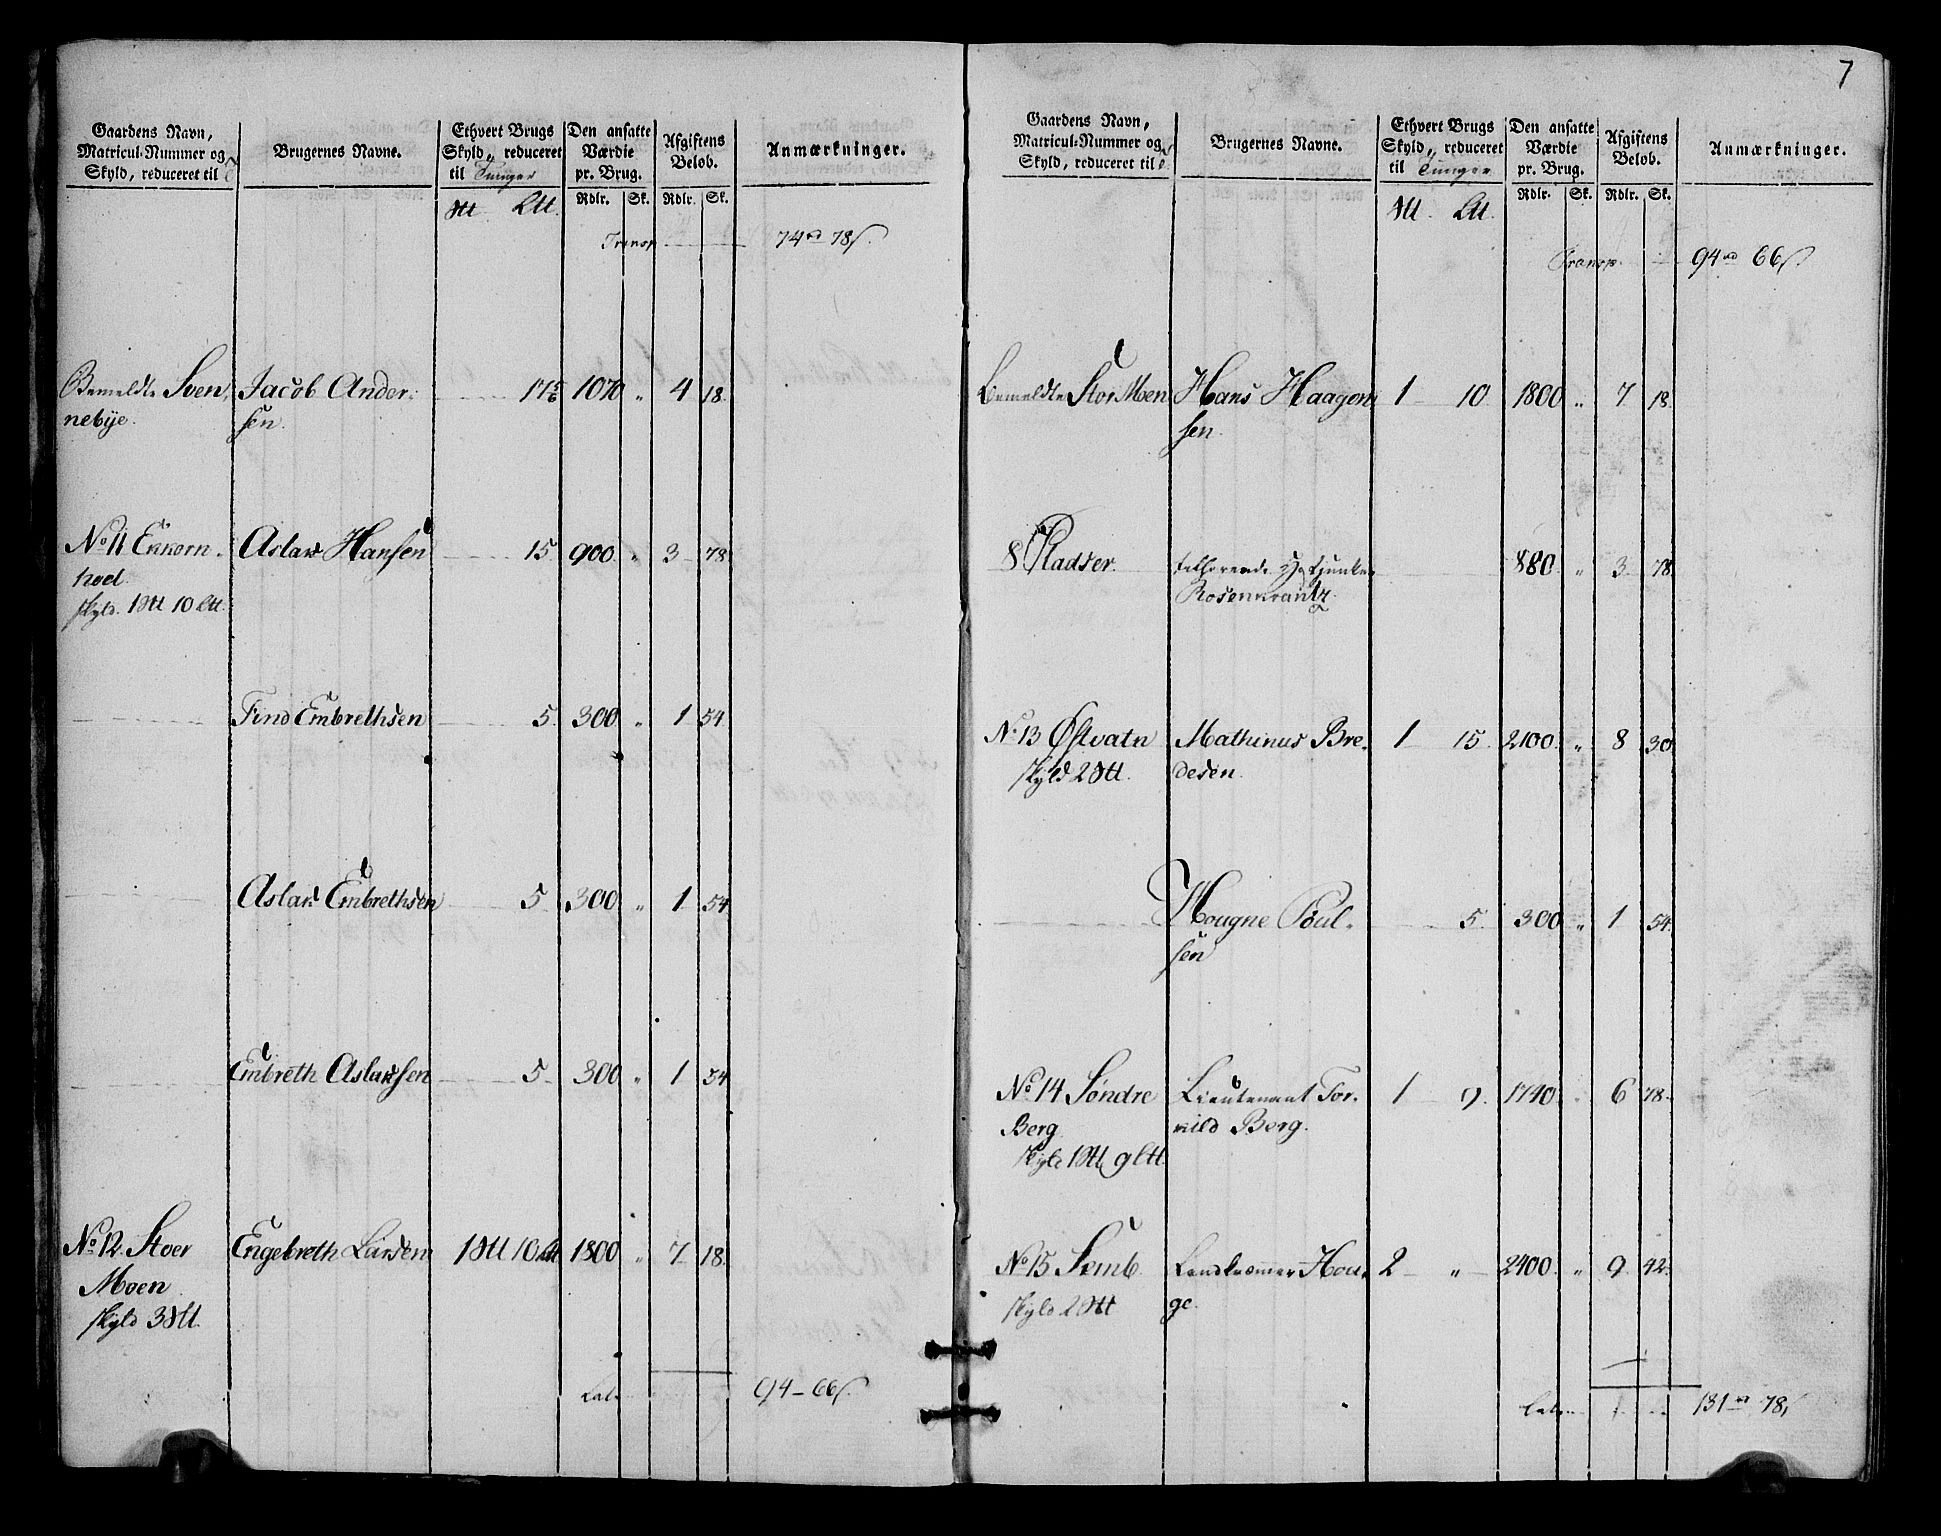 Gaardens Navn,
Matricul-Nummer og
Skyld, reduceret til
Brugernes Navne.
Ethvert Brugs
Skyld, reduceret
til Tunger
Den ansatte
Værdie
pr. Brug.
Afgiftens
Beløb.
Anmærkninger.
Rdlr. Sk. Rdlr. Sk.
Transp. 74 rd 78 s.
Bemeldte Sven- Jacob Ander- 17 5/6 1070 " 4 18.
nebÿe. sen.
No 11 Ekkorn- Aslak Hansen 15 900. " 3 78
hoel
skyld. 1 10
Find Embrethsen 5. 300. " 1 54
Aslak Embrethsen 5 300. " 1 54
Embreth Aslaksen 5 300. " 1 54
No 12. Stoer Engebreth Larsen 1 10 1800 " 7 18.
Moen
skyld 3
Lats 94 - 66 s.
7
Gaardens Navn,
Matricul-Nummer og
Skyld, reduceret til
Brugernes Navne.
Ethvert Brugs
Skyld, reduceret
til Tunger
Den ansatte
Værdie
pr. Brug.
Afgiftens
Beløb.
Anmærkninger.
Rdlr. Sk. Rdlr. Sk.
Transp. 94 rd 66 s.
Bemeldte Stor Moen Hans Haagen- 1 10. 1800 " 7 18.
sen.
8 Pladser. tilhørende 880. " 3. 78.
Rosenkrantz.
No 13 Østvatn Mathinus Bre- 1 15. 2100. " 8 30
skyld 2 desen.
Hougne Poul- 5. 300 " 1 54.
sen
No 14 Søndre Lieutenant Tor- 1 9. 1740. " 6 78.
Berg kild Berg.
skyld 1 9
No 15 Somb. Landkræmmer Hou- 2 " 2400. " 9. 42.
skyld 2 ge.
Lats 131 rd 78 s